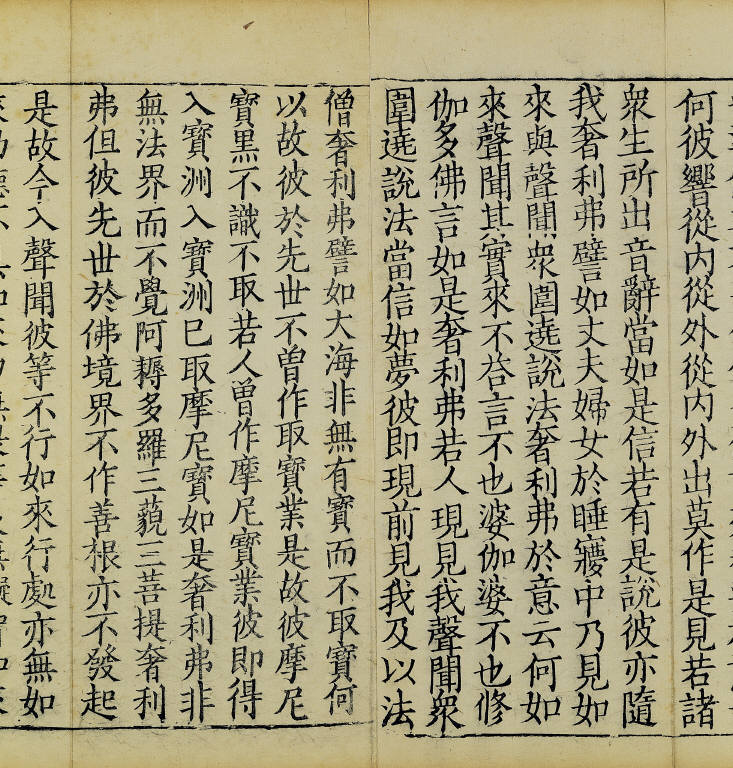 何彼響從內從外從內外出莫作是見若諸
衆生所出音辭當如是信若有是說彼亦隨
我奢利弗譬如丈夫婦女於睡寱中乃見如
來與聲聞衆圍遶說法奢利弗於意云何如
來聲聞其實來不荅言不也婆伽婆不也修
伽多佛言如是奢利弗若人現見我聲聞衆
圍遶說法當信如夢彼即現前見我及以法
僧奢利弗譬如大海非無有寶而不取寶何
以故彼於先世不曾作取寶業是故彼摩尼
寶黑不識不取若人曾作摩尼寶業彼即得
入寶洲入寶洲已取摩尼寶如是奢利弗非
無法界而不覺阿耨多羅三藐三菩提奢利
弗但彼先世於佛境界不作善根亦不發起
是故今入聲聞彼等不行如來行處亦無如